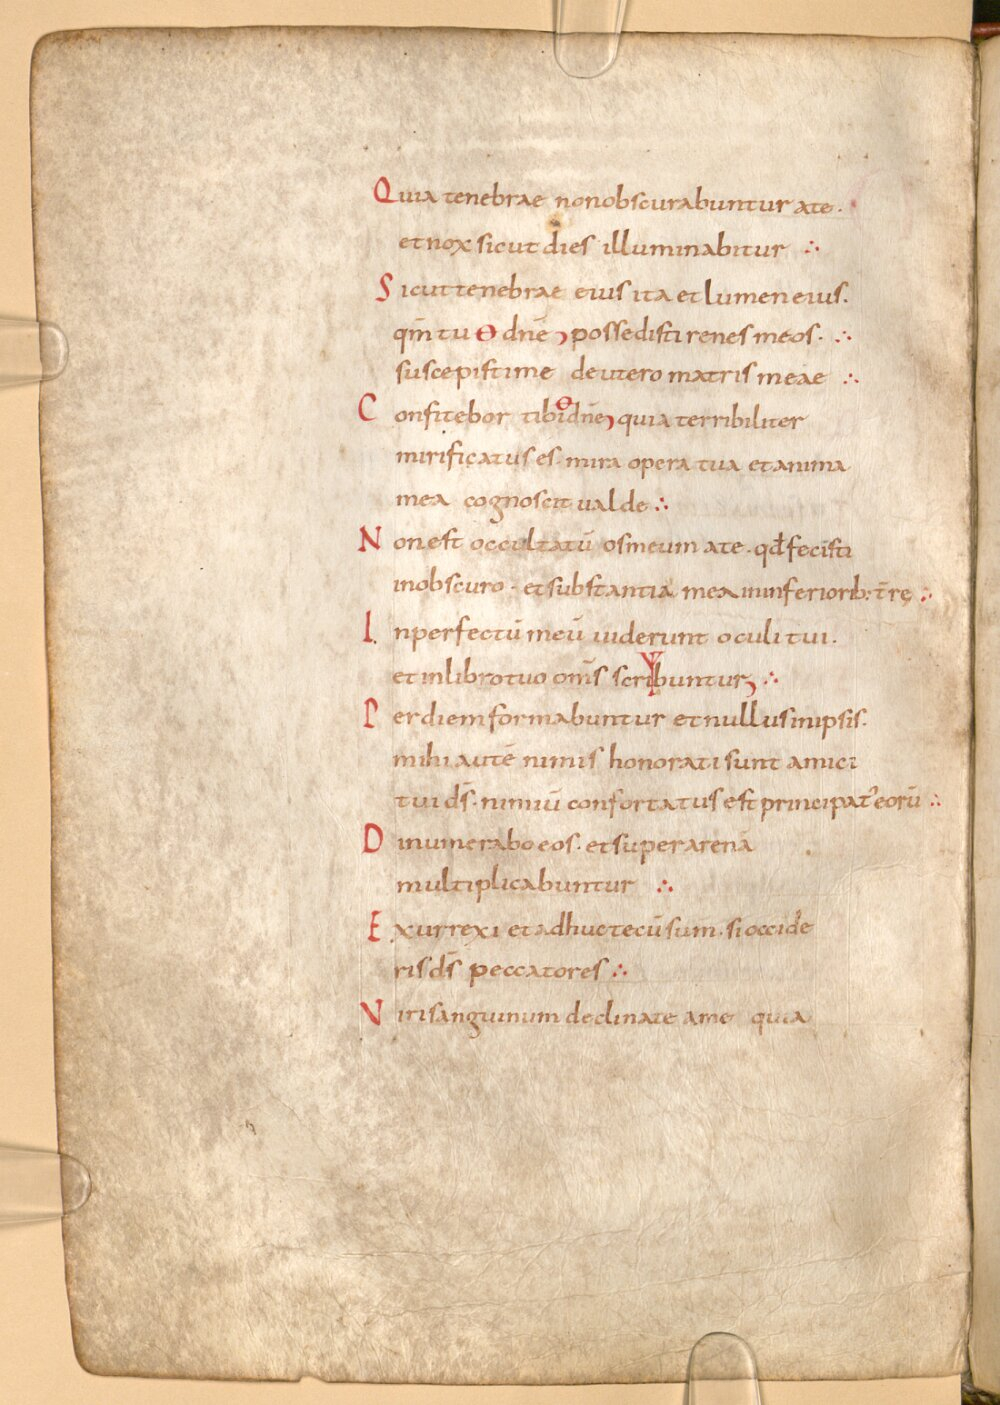 Quia tenebrae nonobscurabuntur ate·
etnox sicut dies illuminabitur ∴
Sicuttenebrae eius ita etlumeneius.
qm̅ tu ɵ dn̅e ꝫ possedisti renes meos· ∴
suscepistime deutero matris meae ∴
Confitebor tibi ɵ dn̅eꝫ quia terribiliter
mirificatus es· mira opera tua etanima
mea cognoscit ualde ∴
Nonest occultatū osmeum ate· qđfecisti
inobscuro· etsubstantia mea ininferiorib: t̅rę ∴
Inperfectū meū uiderunt oculi tui.
etinlibrotuo om̅s scribunturꝫ ∴
Perdiemformabuntur etnullusinipsis·
mihi autē nimis honorati sunt amici
tui ds̅· nimiū confortatus est principat᾿eorū ∴
Dinumerabo eos· etsuperarenā
multiplicabuntur ∴
Exurrexi etadhuctecū sum· si occide
ris ds̅ peccatores ∴
Virisanguinum declinate ame quia